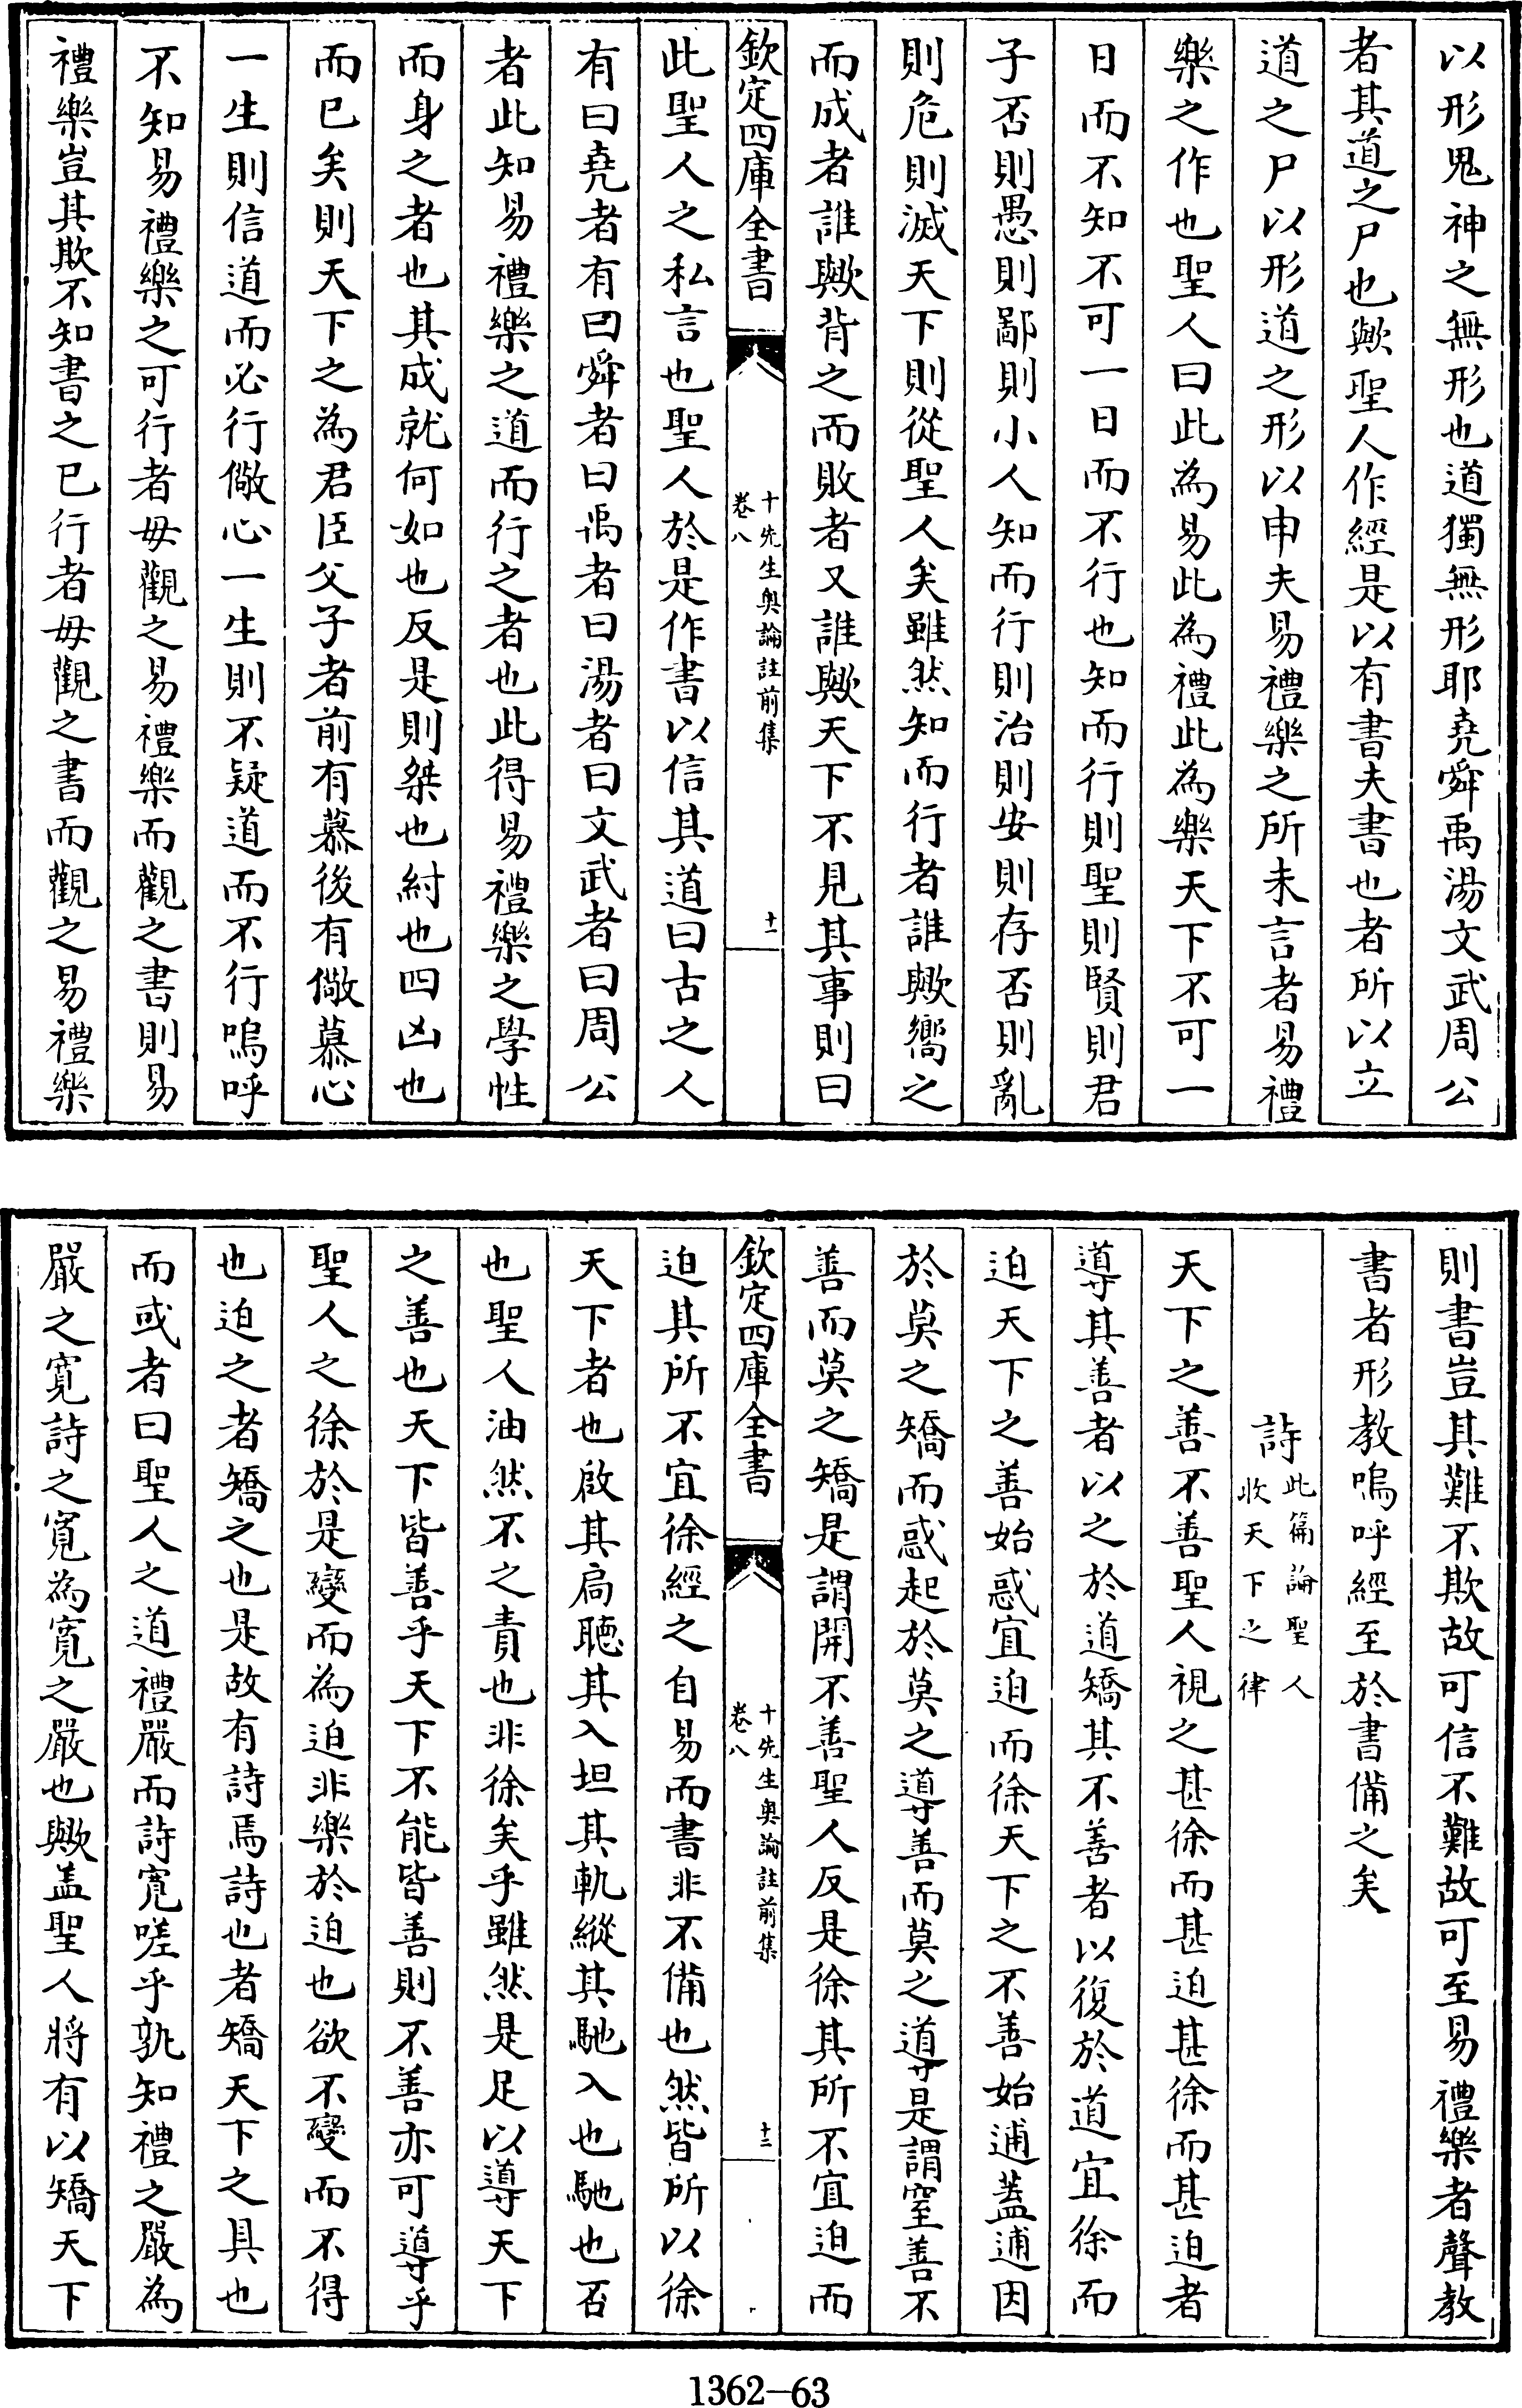 以形鬼神之無形也道獨無形耶堯舜禹湯文武周公
者其道之尸也歟聖人作經是以有書夫書也者所以立
道之尸以形道之形以申夫易禮樂之所未言者易禮
樂之作也聖人曰此為易此為禮此為樂天下不可一
日而不知不可一日而不行也知而行則聖則賢則君
子否則愚則鄙則小人知而行則治則安則存否則亂
則危則滅天下則從聖人矣雖然知而行者誰歟嚮之
而成者誰歟背之而敗者又誰歟天下不見其事則曰
欽定四庫全書
十先生奧論註前集
卷八
十一
此聖人之私言也聖人於是作書以信其道曰古之人
有曰堯者有曰舜者曰禹者曰湯者曰文武者曰周公
者此知易禮樂之道而行之者也此得易禮樂之學性
而身之者也其成就何如也反是則桀也紂也四凶也
而已矣則天下之為君臣父子者前有慕後有儆慕心
一生則信道而必行儆心一生則不疑道而不行嗚呼
不知易禮樂之可行者毋觀之易禮樂而觀之書則易
禮樂豈其欺不知書之已行者毋觀之書而觀之易禮樂
則書豈其難不欺故可信不難故可至易禮樂者聲教
書者形教嗚呼經至於書備之矣
詩
此篇論聖人
收天下之律
天下之善不善聖人視之甚徐而甚迫甚徐而甚迫者
導其善者以之於道矯其不善者以復於道宜徐而
迫天下之善始惑宜迫而徐天下之不善始逋蓋逋因
於莫之矯而惑起於莫之導善而莫之導是謂窒善不
善而莫之矯是謂開不善聖人反是徐其所不宜迫而
欽定四庫全書
十先生奧論註前集
卷八
十二
迫其所不宜徐經之自易而書非不備也然皆所以徐
天下者也啟其扃聽其入坦其軌縱其馳入也馳也否
也聖人油然不之責也非徐矣乎雖然是足以導天下
之善也天下皆善乎天下不能皆善則不善亦可導乎
聖人之徐於是變而為迫非樂於迫也欲不變而不得
也迫之者矯之也是故有詩焉詩也者矯天下之具也
而或者曰聖人之道禮嚴而詩寬嗟乎孰知禮之嚴為
嚴之寬詩之寬為寬之嚴也歟盖聖人將有以矯天下
1362-63